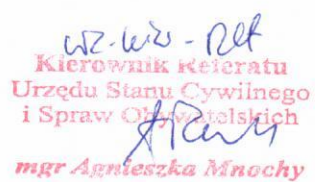 Kierownik Referatu
Urzędu Stanu Cywilnego
i Spraw Obywatelskich
mgr Agnieszka Mnochy